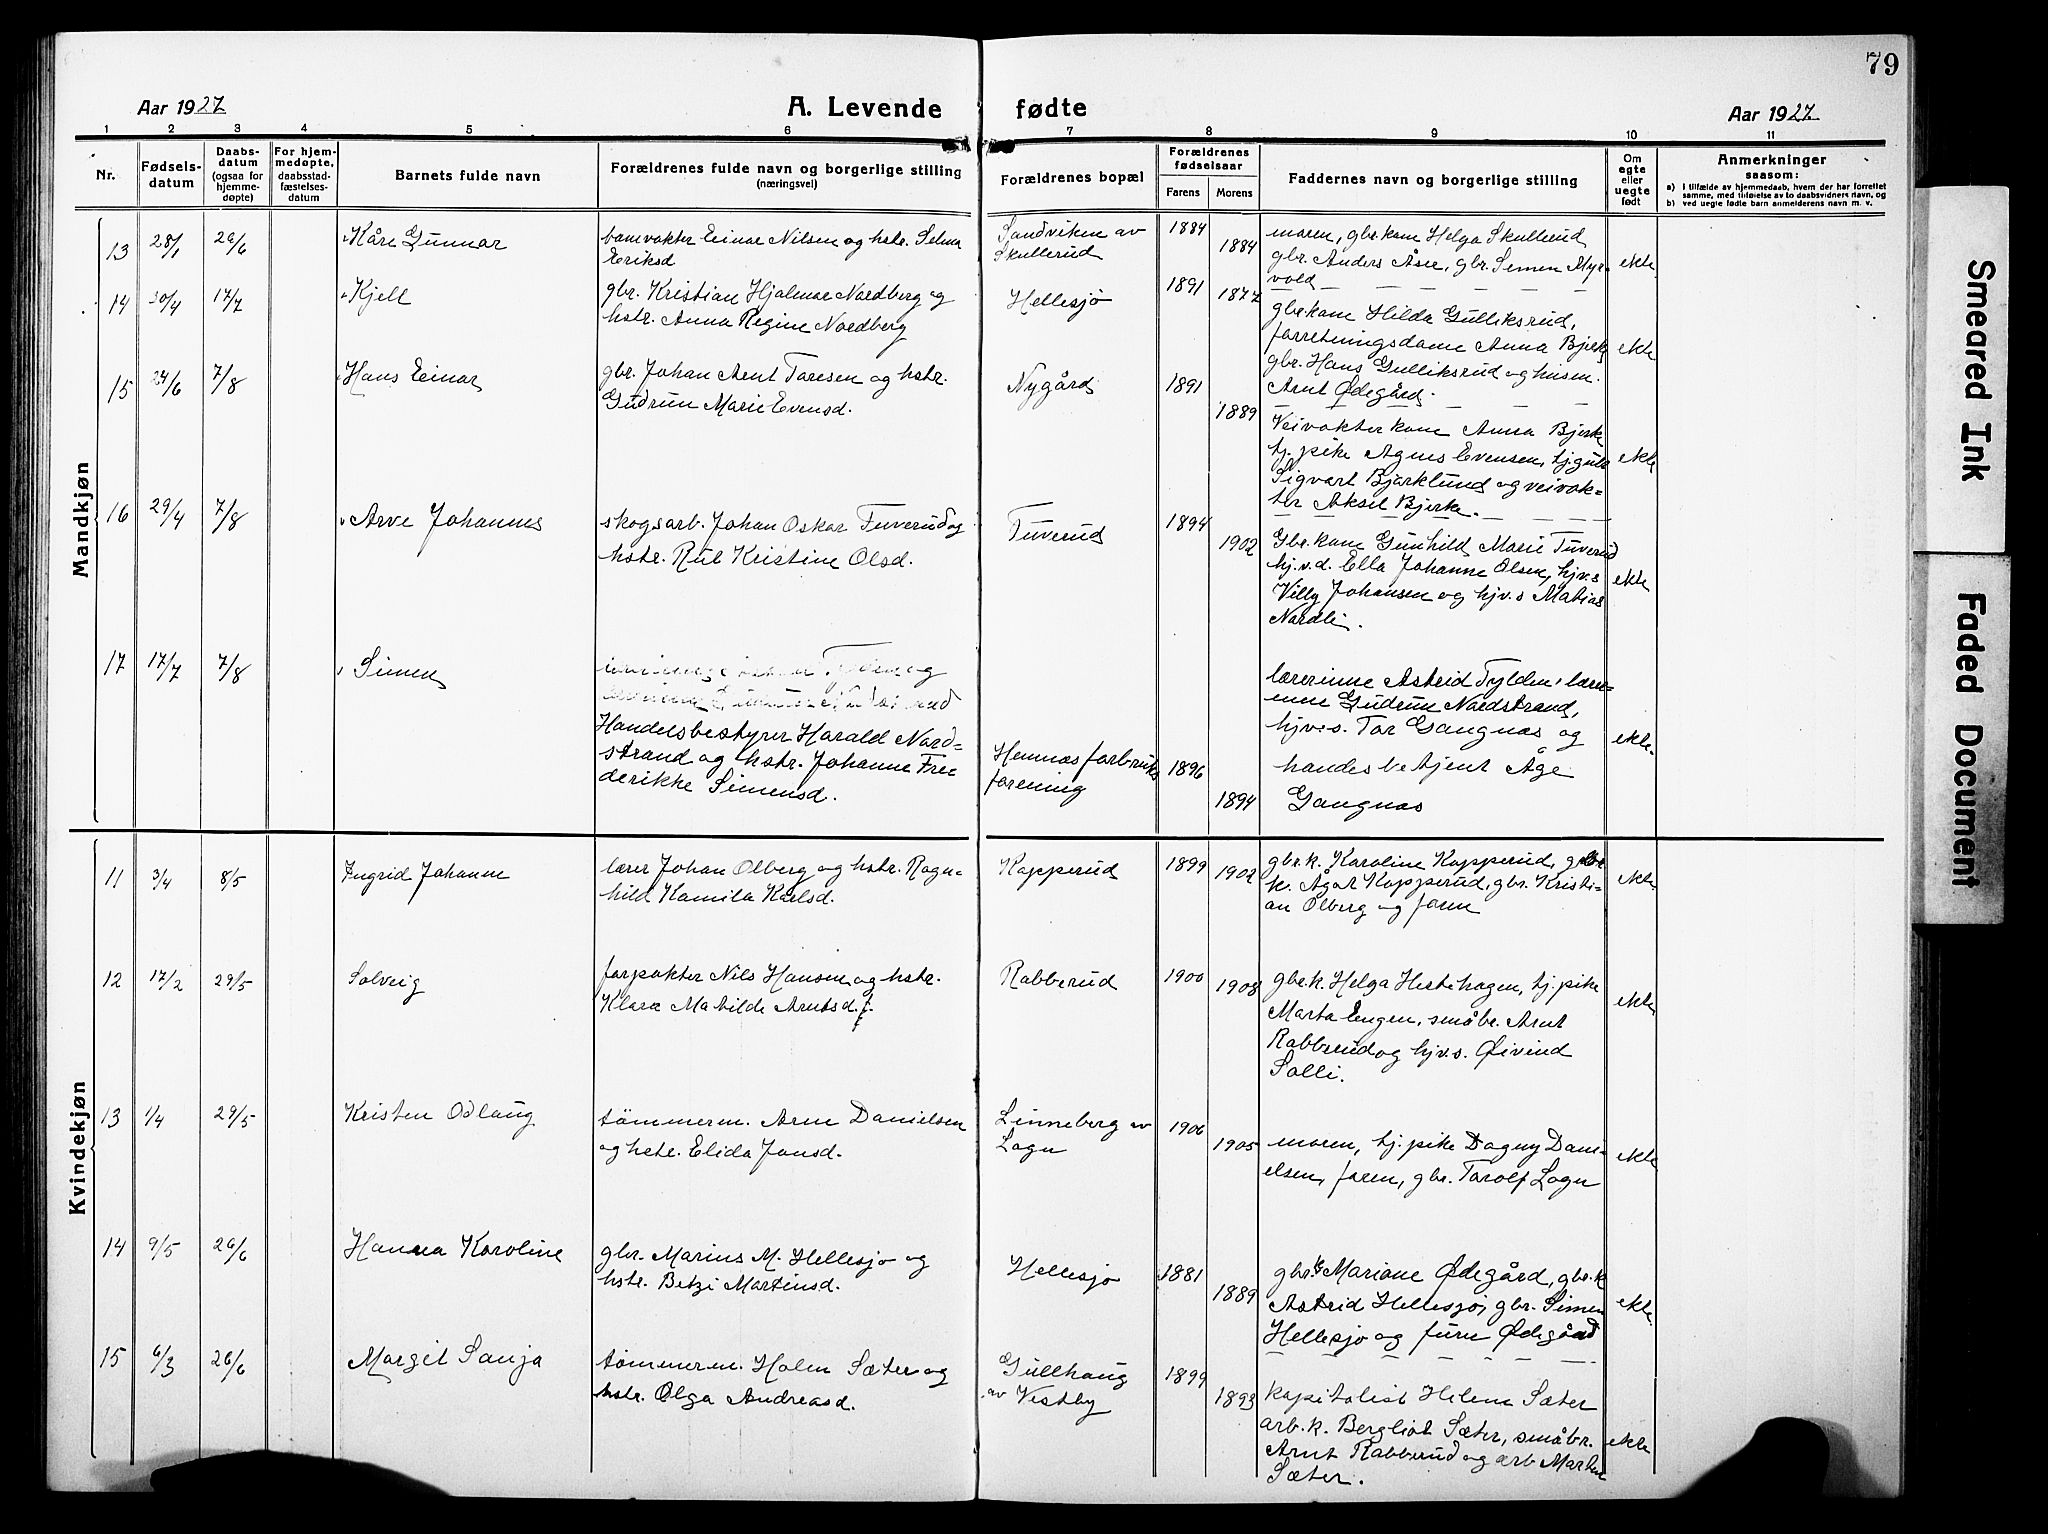 79
Aar 1927
A. Levende fødte
Aar 1927
1 2 3 4 5 6 7 8 9 10 11
Nr.
Fødsels-
datum
Daabs-
datum
(ogsaa for
hjemme-
døpte)
For hjem-
medøpte,
daabsstad-
fæstelses-
datum
Barnets fulde navn
Forældrenes fulde navn og borgerlige stilling
(næringsvei)
Forældrenes bopæl
Forældrenes
fødselsaar
Farens
Morens
Faddernes navn og borgerlige stilling
Om
egte
eller
uegte
født
Anmerkninger
saasom:
a) I tilfælde av hjemmedaab, hvem der har forrettet
samme, med tilføielse av to daabsvidners navn, og
b) ved uegte fødte barn anmelderens navn m. v.
Mandkjøn
13 28/1 26/6 Kåre Gunnar
banevokter Einar Nilsen og hstr. Selma
Eriksd
Sandviken av
Skullerud
1884
1884
moren, gbr.kone Helga Skullerud
gbr. Anders Åser, gbr. Simen Myr-
vold
ekte
14 30/4 17/7 Kjell
gbr. Kristian Hjalmar Nordberg og
hstr. Anna Regine Nordberg
Hellesjø
1891
1877
gbrkone Hilda Gulliksrud,
forretningsdame Anna Bjerke
gbr. Hans Gulliksrud og husm.
Arnt Ødegård.
ekte
15 24/6 7/8 Hans Einar
gbr. Johan Arnt Toresen og hstr.
Gudrun Marie Evensd.
Nygård
1891
1889
Veivokterkone Anna Bjerke
tj. pike Agnes Evensen, tj.gutt
Sigvart Bjørklund og veivok-
ter Aksel Bjerke.
ekte
16 29/4 7/8 Arve Johannes
skogsarb. Johan Oskar Tuverud og
hstr. Rut Kristine Olsd.
Tuverud
1894
1902
Gbr.kone Gunhild Marie Tuverud
hj.v.d. Ella Johanne Olsen, hjv.s
Villy Johansen og hjv.s Matias
Nordli.
ekte
17 17/7 7/8 Simen
og
Handelsbestyrer Harald Nord-
strand og hstr. Johanne Fre-
derikke Simensd.
Hemnæs forbruks
forening
1896
1894
lærerinne Astrid Tylden, lærer-
inne Gudrun Nordstrand,
hjv.s. Tor Gangnæs og
handesbetjent Åge
Gangnæs
ekte.
Kvindekjøn
11 3/4 8/5 Ingrid Johanne
lærer Johan Olberg og hstr. Ragn-
hild Kamila Karlsd.
Kopperud
1899
1902
gbr.k. Karoline Kopperud, gbr
k. Ågot Kopperud, gbr. Kristi-
an Olberg og faren
ekte
12 17/2 29/5 Solveig
forpakter Nils Hansen og hstr.
Klara Matilde Arntsd.
Rabberud
1900
1908
gbr.k. Helga Hestehagen, tj. pike
Marta Engen, småbr. Arnt
Rabberud og hjv.s. Øivind
Solli.
ekte
13 1/4 29/5 Kristen Odlaug
tømmerm. Arne Danielsen
og hstr. Elida Jonsd.
Linneberg av
Logn
1906
1905
moren, tj. pike Dagny Dani-
elsen, faren, gbr. Torolf Logn
ekte
14 9/5 26/6 Hanna Karoline
gbr. Marius M. Hellesjø og
hstr. Betzi Martinsd.
Hellesjø
1881
1889
gbr.k Mariane Ødegård, gbr.k
Astrid Hellesjø, gbr. Simen
Hellesjø og Ødegård
ekte.
15 6/3 26/6 Margit Sonja
tømmerm. Holm Sæter og
hstr. Olga Andreasd.
Gullhaug
av Vestby
1899
1893
kapitalist Helene Sæter
arb.k. Bergliot Sæter, småbr.
Arnt Rabberud og arb Marten
Sæter.
ekte
Smeared Ink
Faded Document